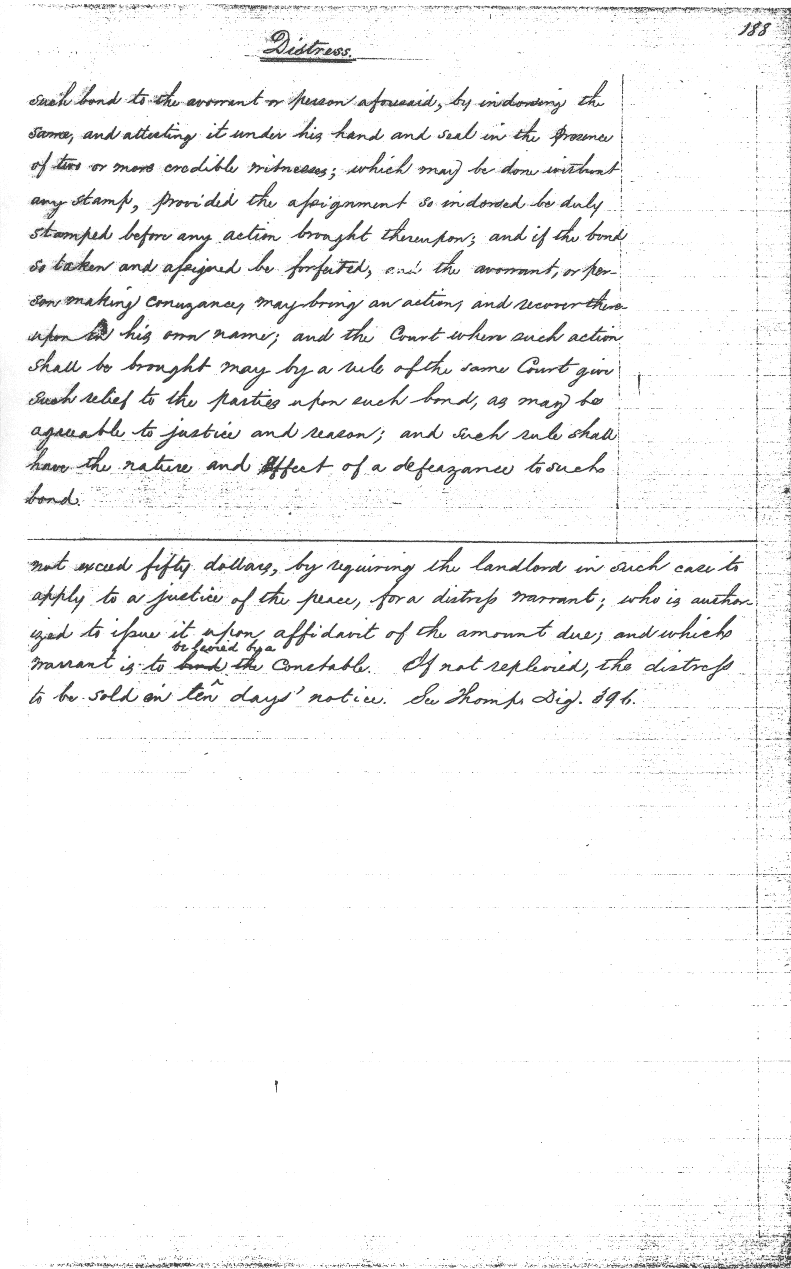 188
Distress.
such bond to the avowant or person aforesaid, by indorsing the
same, and attesting it under his hand and seal in the presence
of two or more credible witnesses; which may be done without
any stamp, provided the assignment so indorsed be duly
stamped before any action brought thereupon; and if the bond
so taken and assigned be forfeited, the avowant, or per-
son making conuzance, may bring an action, and recover there-
upon in his own name; and the Court where such action
shall be brought may by a rule of the same Court give
such relief to the parties upon such bond, as may be
agreeable to justice and reason; and such rule shall
have the nature and effect of a defeazance to such
bond.
not exceed fifty dollars, by requiring the landlord in such case to
apply to a justice of the peace, for a distress warrant; who is author-
ized to issue it upon affidavit of the amount due; and which
be levied by a
warrant is to the Constable. If not replevied, the distress
to be sold on ten days' notice. See Thomp. Dig. 396.